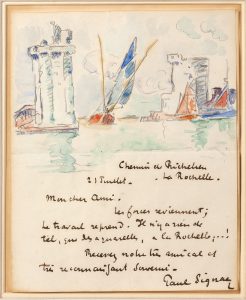 Chemin de Richelieu
La Rochelle.
21 Juillet.
Mon cher Ami.
Les forces reviennent;
Le travail reprend. Il n'y a rien de
tel, que des aquarelles, à La Rochelle,...!
Recevez notre très amical et
très reconnaissant souvenir.
Paul Signac